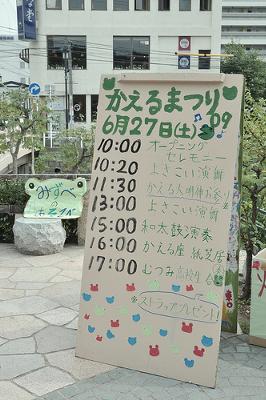 かえるまつり'09
6月27日(土)
10:00 オープニング
セレモニー
10:20 よさこい演舞
11:30 かえる大明神お祭り
13:00 よさこい演舞
15:00 和太鼓演奏
16:00 かえる座 紙芝居
17:00 むつみ高校生
ストラッププレゼント!!
みずべ
の